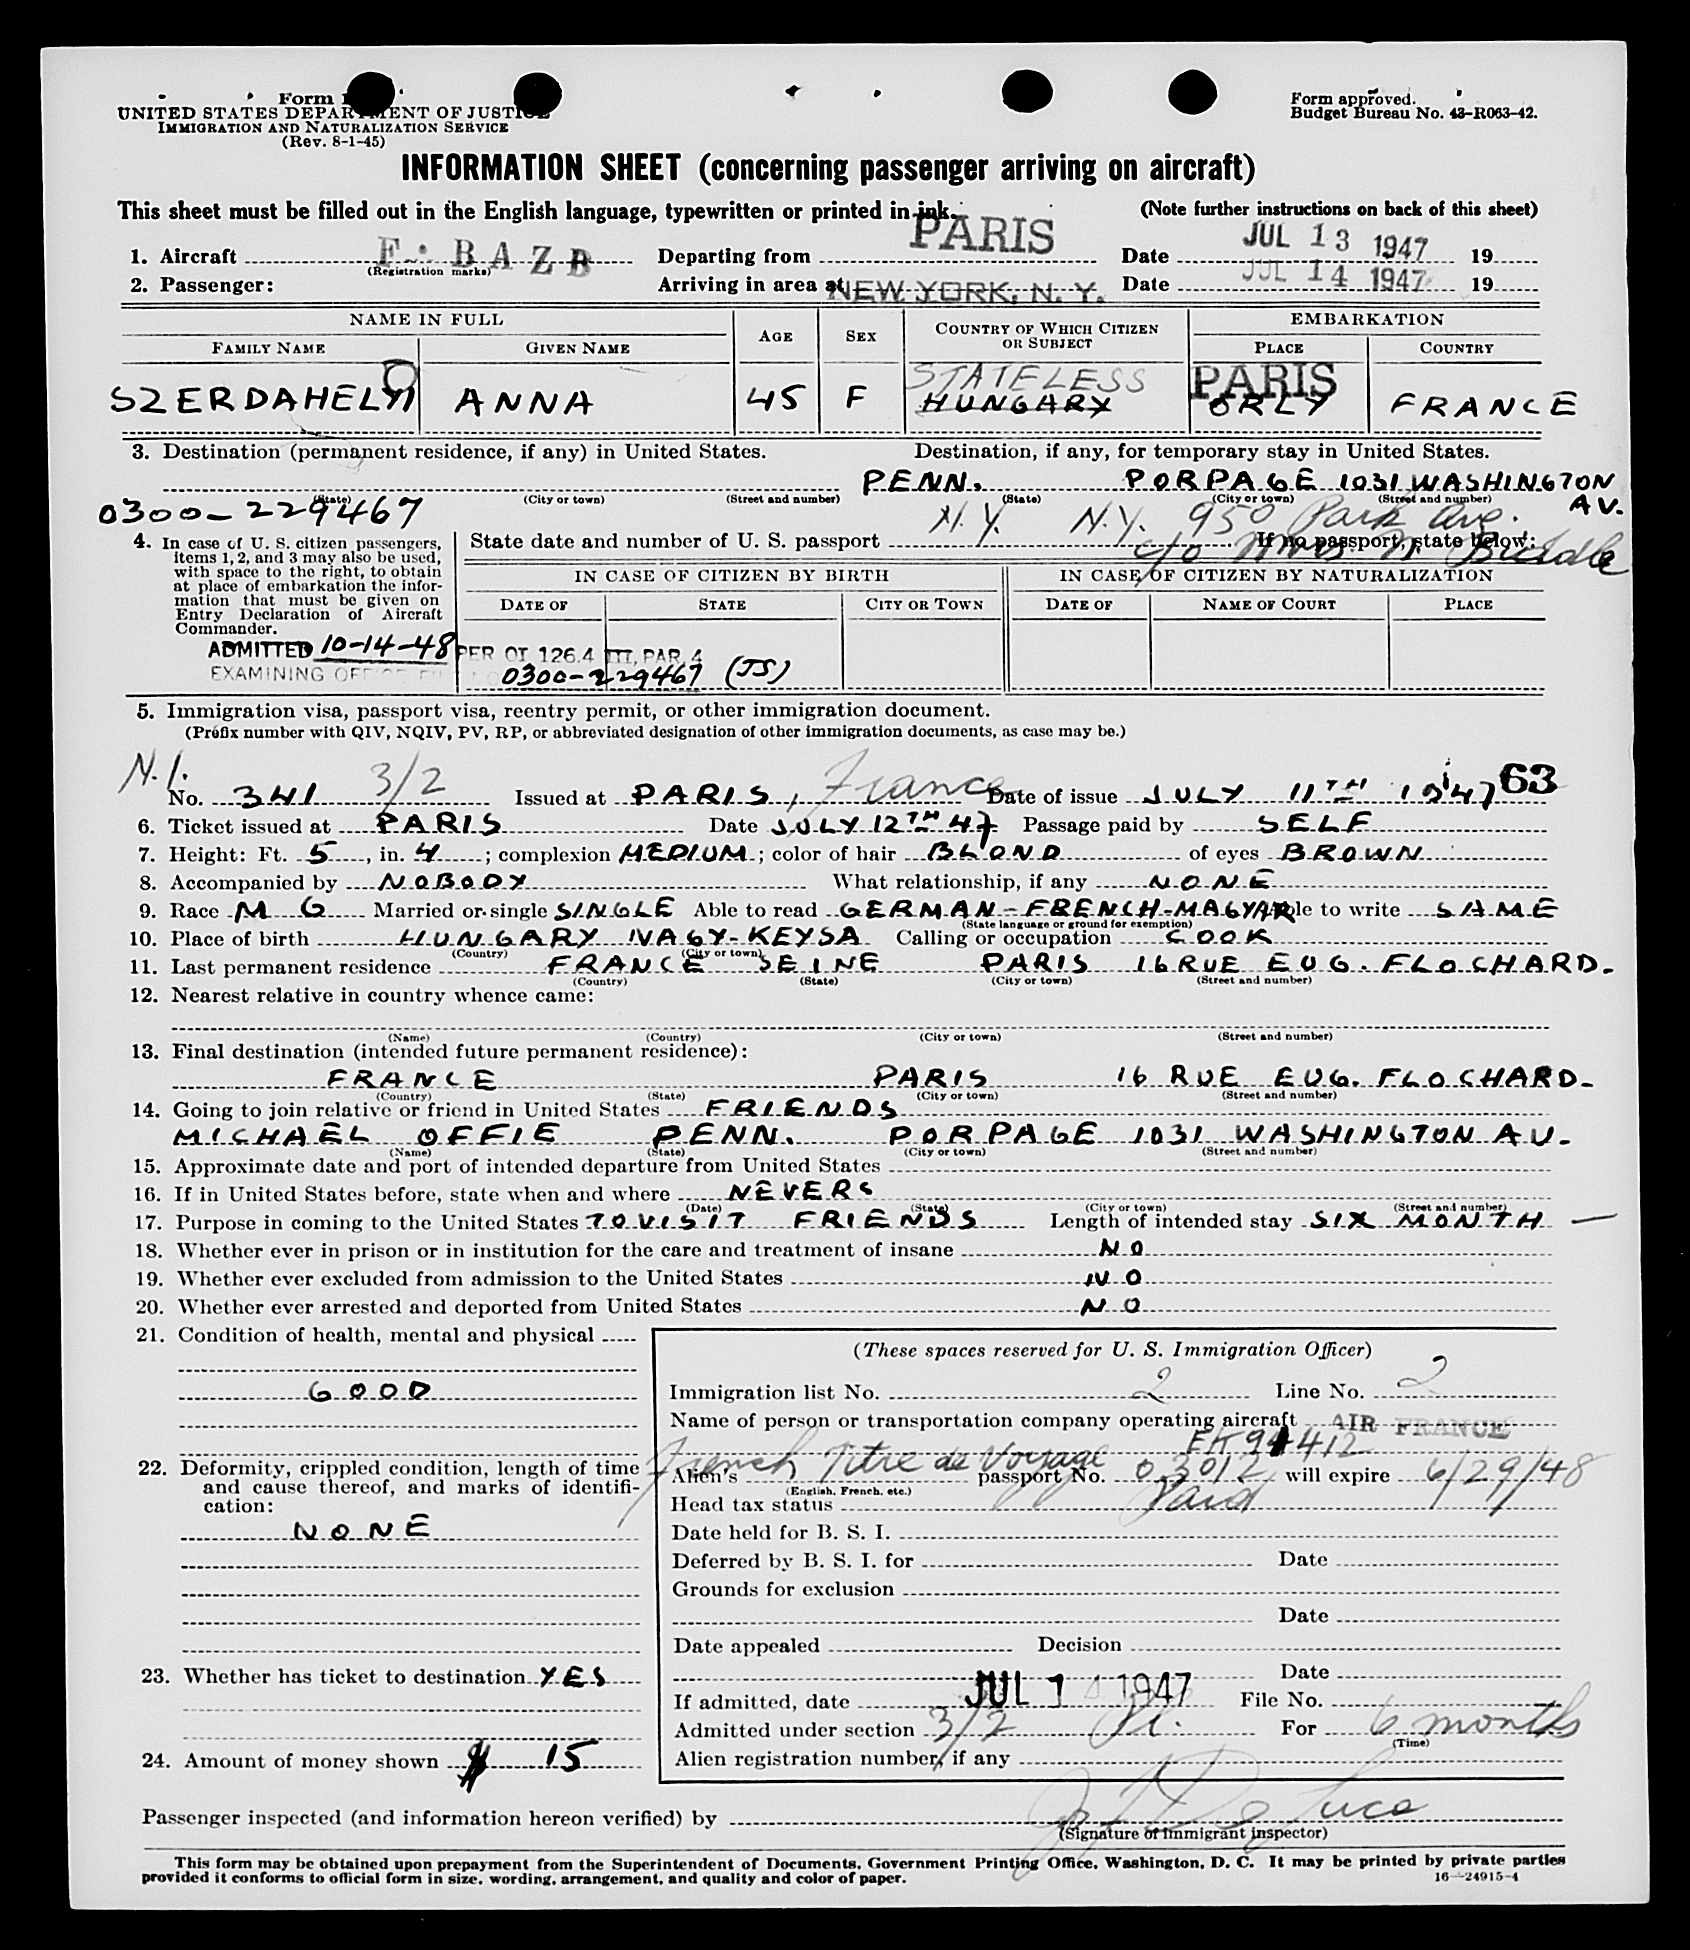 Form
UNITED STATES DEPARTMENT OF JUSTICE
IMMIGRATION AND NATURALIZATION SERVICE
(Rev. 8-1-45)
Form approved.
Budget Bureau No. 43-R063-42.
INFORMATION SHEET (concerning passenger arriving on aircraft)
This sheet must be filled out in the English language, typewritten or printed in ink. (Note further instructions on back of this sheet)
1. Aircraft F. BAZB Departing from PARIS Date JUL 13 1947 19
(Registration marks)
2. Passenger: Arriving in area at NEW YORK, N. Y. Date JUL 14 1947 19
NAME IN FULL AGE SEX COUNTRY OF WHICH CITIZEN OR SUBJECT EMBARKATION
FAMILY NAME GIVEN NAME PLACE COUNTRY
STATELESS PARIS
SZERDAHELYI ANNA 45 F HUNGARY ORLY FRANCE
3. Destination (permanent residence, if any) in United States. Destination, if any, for temporary stay in United States.
PENN. PORPAGE 1031 WASHINGTON AV.
(State) (City or town) (Street and number) (State) (City or town) (Street and number)
0300-229467 N.Y. N.Y. 950 Park Ave.
4. In case of U. S. citizen passengers, items 1, 2, and 3 may also be used, with space to the right, to obtain at place of embarkation the information that must be given on Entry Declaration of Aircraft Commander.
State date and number of U. S. passport If no passport, state below:
c/o Mrs.
IN CASE OF CITIZEN BY BIRTH IN CASE OF CITIZEN BY NATURALIZATION
DATE OF STATE CITY OR TOWN DATE OF NAME OF COURT PLACE
ADMITTED 10-14-48 PER OI 126.4 III, PAR. 4
EXAMINING 0300-229467 (JS)
5. Immigration visa, passport visa, reentry permit, or other immigration document.
(Prefix number with QIV, NQIV, PV, RP, or abbreviated designation of other immigration documents, as case may be.)
N.I. 3/2 63
No. 341 Issued at PARIS, France Date of issue JULY 11TH 1947
6. Ticket issued at PARIS Date JULY 12TH 47 Passage paid by SELF
7. Height: Ft. 5, in. 4; complexion MEDIUM; color of hair BLOND of eyes BROWN
8. Accompanied by NOBODY What relationship, if any NONE
9. Race M G Married or single SINGLE Able to read GERMAN-FRENCH-MAGYAR Able to write SAME
(State language or ground for exemption)
10. Place of birth HUNGARY NAGY-KEYSA Calling or occupation COOK
(Country) (City or town)
11. Last permanent residence FRANCE SEINE PARIS 16 RUE EUG. FLOCHARD.
(Country) (State) (City or town) (Street and number)
12. Nearest relative in country whence came:
(Name) (Country) (City or town) (Street and number)
13. Final destination (intended future permanent residence):
FRANCE PARIS 16 RUE EUG. FLOCHARD-
(Country) (State) (City or town) (Street and number)
14. Going to join relative or friend in United States FRIENDS
MICHAEL OFFIE PENN. PORPAGE 1031 WASHINGTON AV.
(Name) (State) (City or town) (Street and number)
15. Approximate date and port of intended departure from United States
16. If in United States before, state when and where NEVERS
(Date) (State) (City or town) (Street and number)
17. Purpose in coming to the United States TO VISIT FRIENDS Length of intended stay SIX MONTH
18. Whether ever in prison or in institution for the care and treatment of insane NO
19. Whether ever excluded from admission to the United States NO
20. Whether ever arrested and deported from United States NO
21. Condition of health, mental and physical
GOOD
22. Deformity, crippled condition, length of time and cause thereof, and marks of identification:
NONE
23. Whether has ticket to destination YES
24. Amount of money shown $ 15
(These spaces reserved for U. S. Immigration Officer)
Immigration list No. 2 Line No. 2
Name of person or transportation company operating aircraft AIR FRANCE
French Titre de Voyage
Alien's passport No. 03012, will expire 6/29/48
(English, French, etc.)
Head tax status Paid
Date held for B. S. I.
Deferred by B. S. I. for Date
Grounds for exclusion
Date
Date appealed Decision
Date
If admitted, date JUL 14 1947 File No.
Admitted under section 3/2 For 6 months
(Time)
Alien registration number, if any
Passenger inspected (and information hereon verified) by
(Signature of Immigrant inspector)
This form may be obtained upon prepayment from the Superintendent of Documents, Government Printing Office, Washington, D. C. It may be printed by private parties
provided it conforms to official form in size, wording, arrangement, and quality and color of paper.
16—24915-4